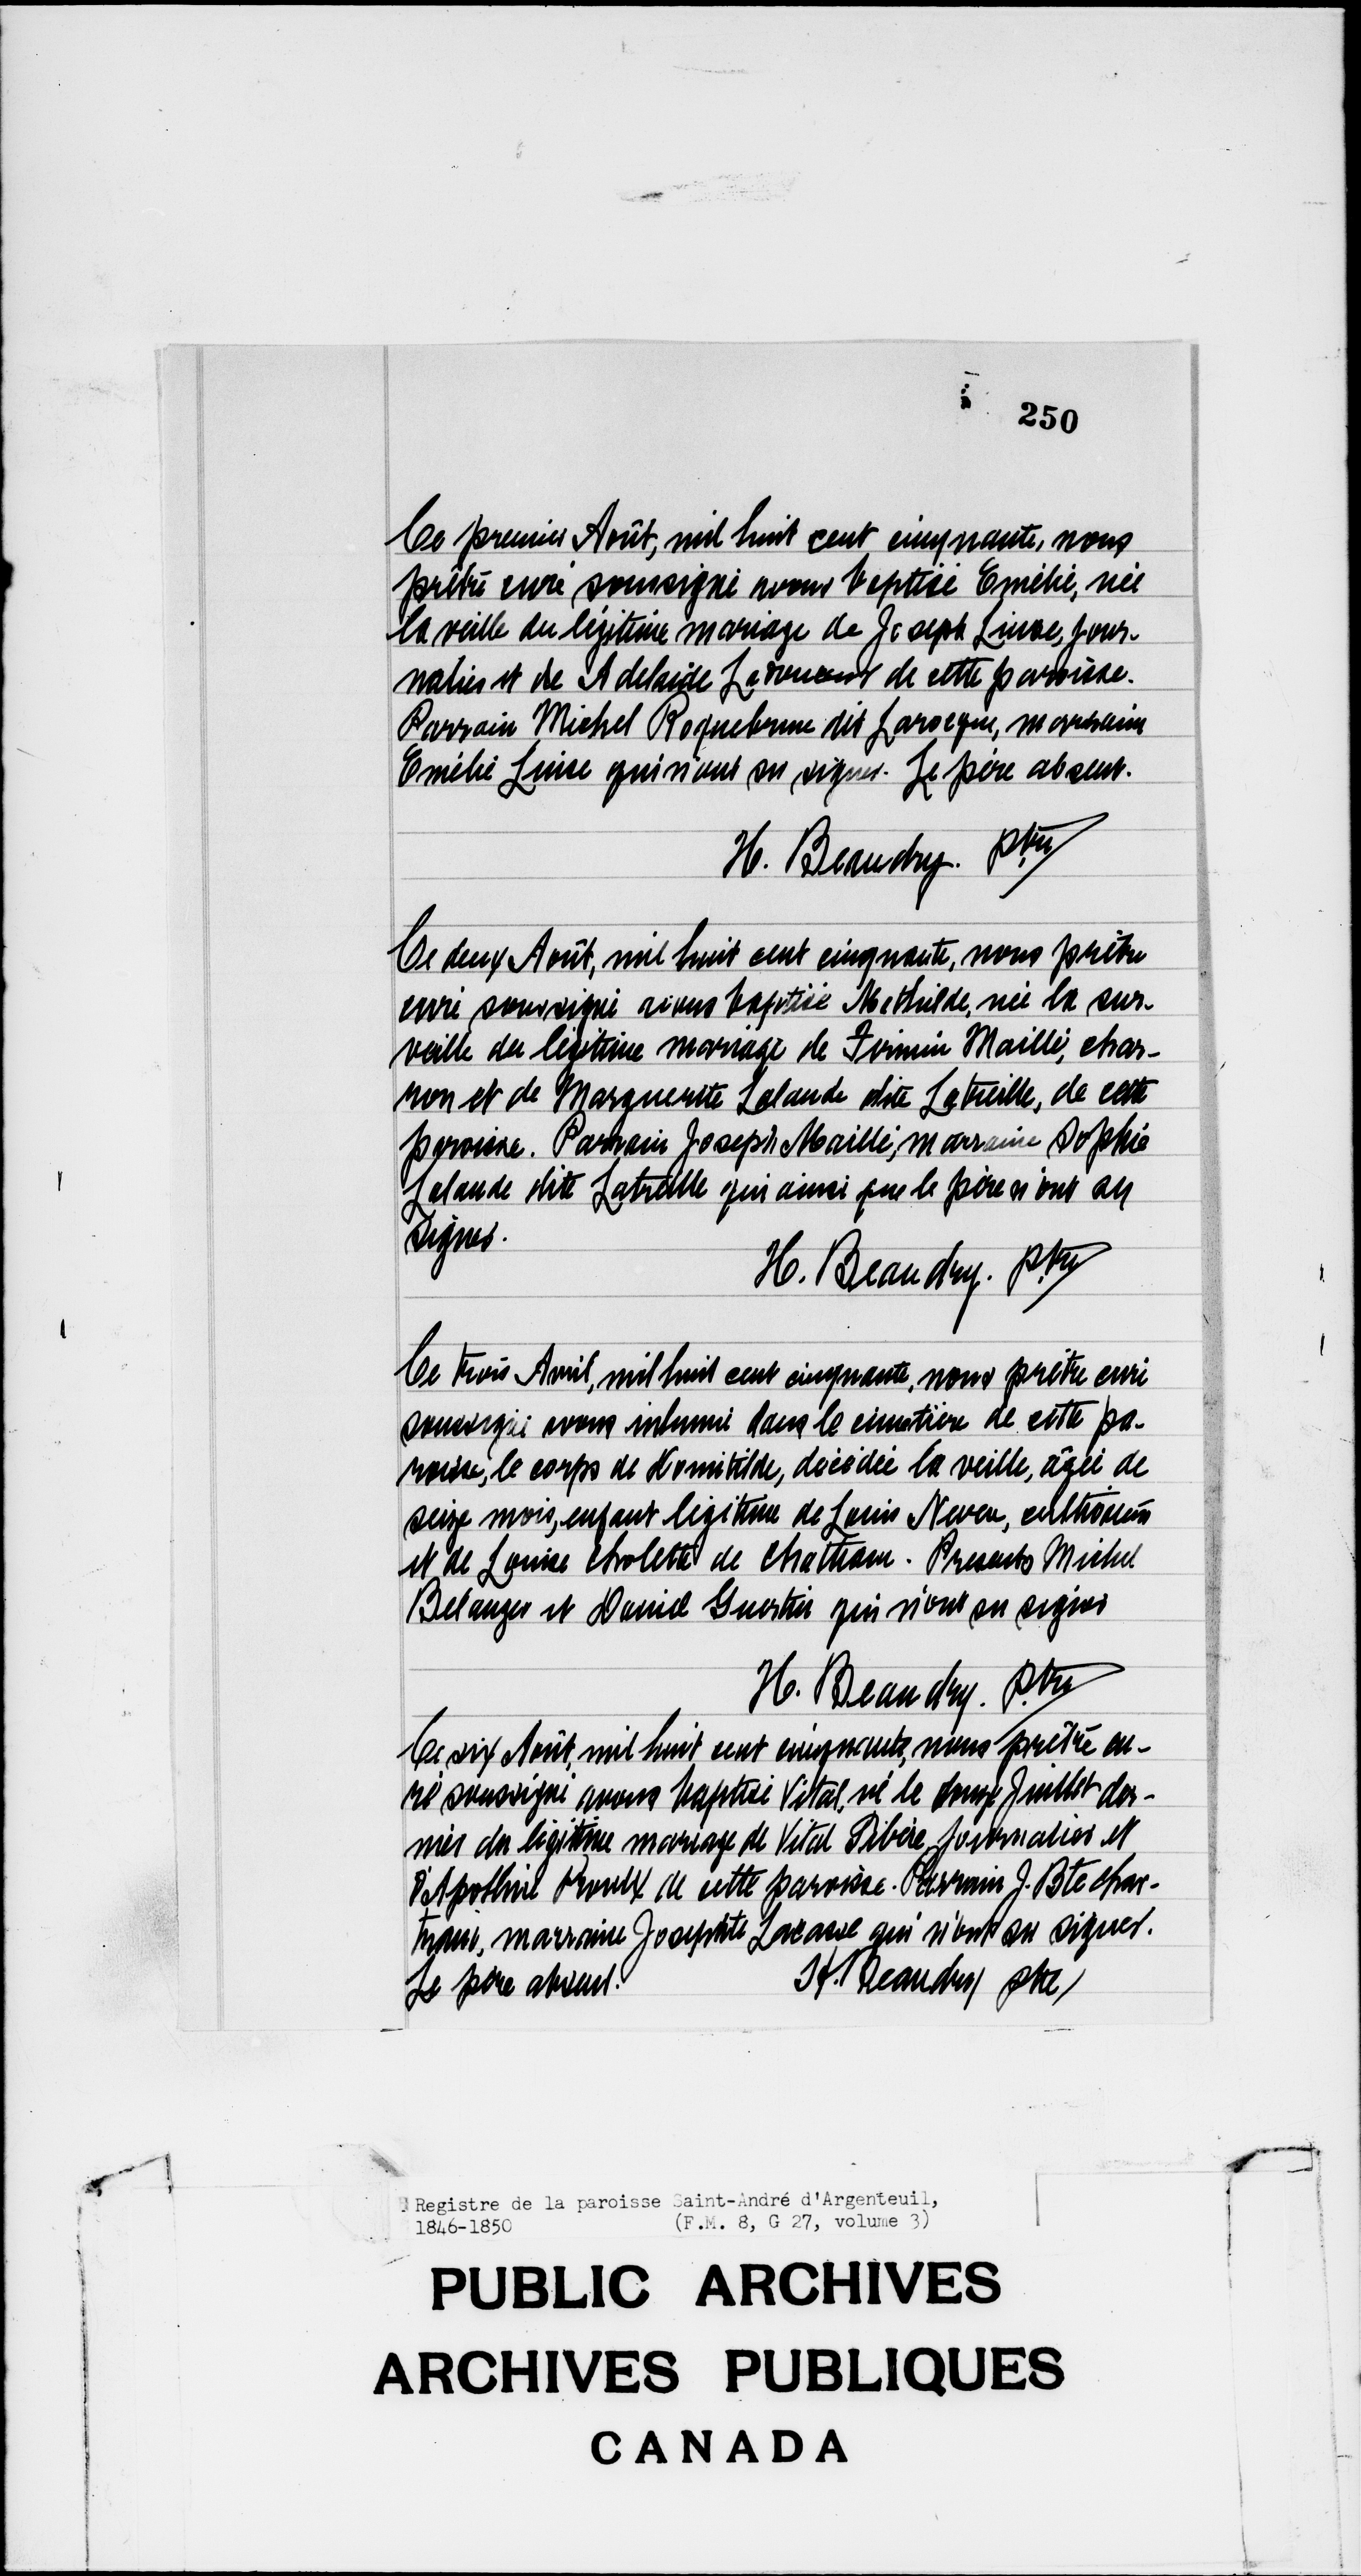 250
Ce premier Août, mil huit cent cinquante, nous
prêtre curé soussigné avons baptisé Emélie, née
la veille du légitime mariage de Joseph Luise, jour-
nalier et de Adelaide Ladouceur de cette paroisse.
Parrain Michel Roquebrune dit Larocque, marraine
Emélie Luise qui n'ont su signer. Le père absent.
H. Beaudry. ptre
Ce deux Août, mil huit cent cinquante, nous prêtre
curé soussigné avons baptisé Mathilde, née la sur-
veille du légitime mariage de Firmin Maillé, char-
ron et de Marguerite Lalande dite Latreille, de cette
paroisse. Parrain Joseph Maillé, marraine Sophie
Lalande dite Latreille qui ainsi que le père n'ont su
signer.
H. Beaudry. ptre
Ce trois Avril, mil huit cent cinquante, nous prêtre curé
soussigné avons inhumé dans le cimetière de cette pa-
roisse, le corps de Domitilde, décédée la veille, âgée de
seize mois, enfant légitime de Louis Neveu, cultivateur
et de Louise Cholette de Chatham. Presents Michel
Belanger et David Guertin qui n'ont su signer
H. Beaudry. ptre
Ce six Août, mil huit cent cinquante, nous prêtre cu-
ré soussigné avons baptisé Vital, né le douze Juillet der-
nier du légitime mariage de Vital Ribére, journalier et
d'Apolline Proulx de cette paroisse. Parrain J. Bte Char-
trand, marraine Josephte Lacasse qui n'ont su signer.
Le père absent. H. Beaudry ptre
Registre de la paroisse Saint-André d'Argenteuil,
1846-1850 (F.M. 8, G 27, volume 3)
PUBLIC ARCHIVES
ARCHIVES PUBLIQUES
CANADA